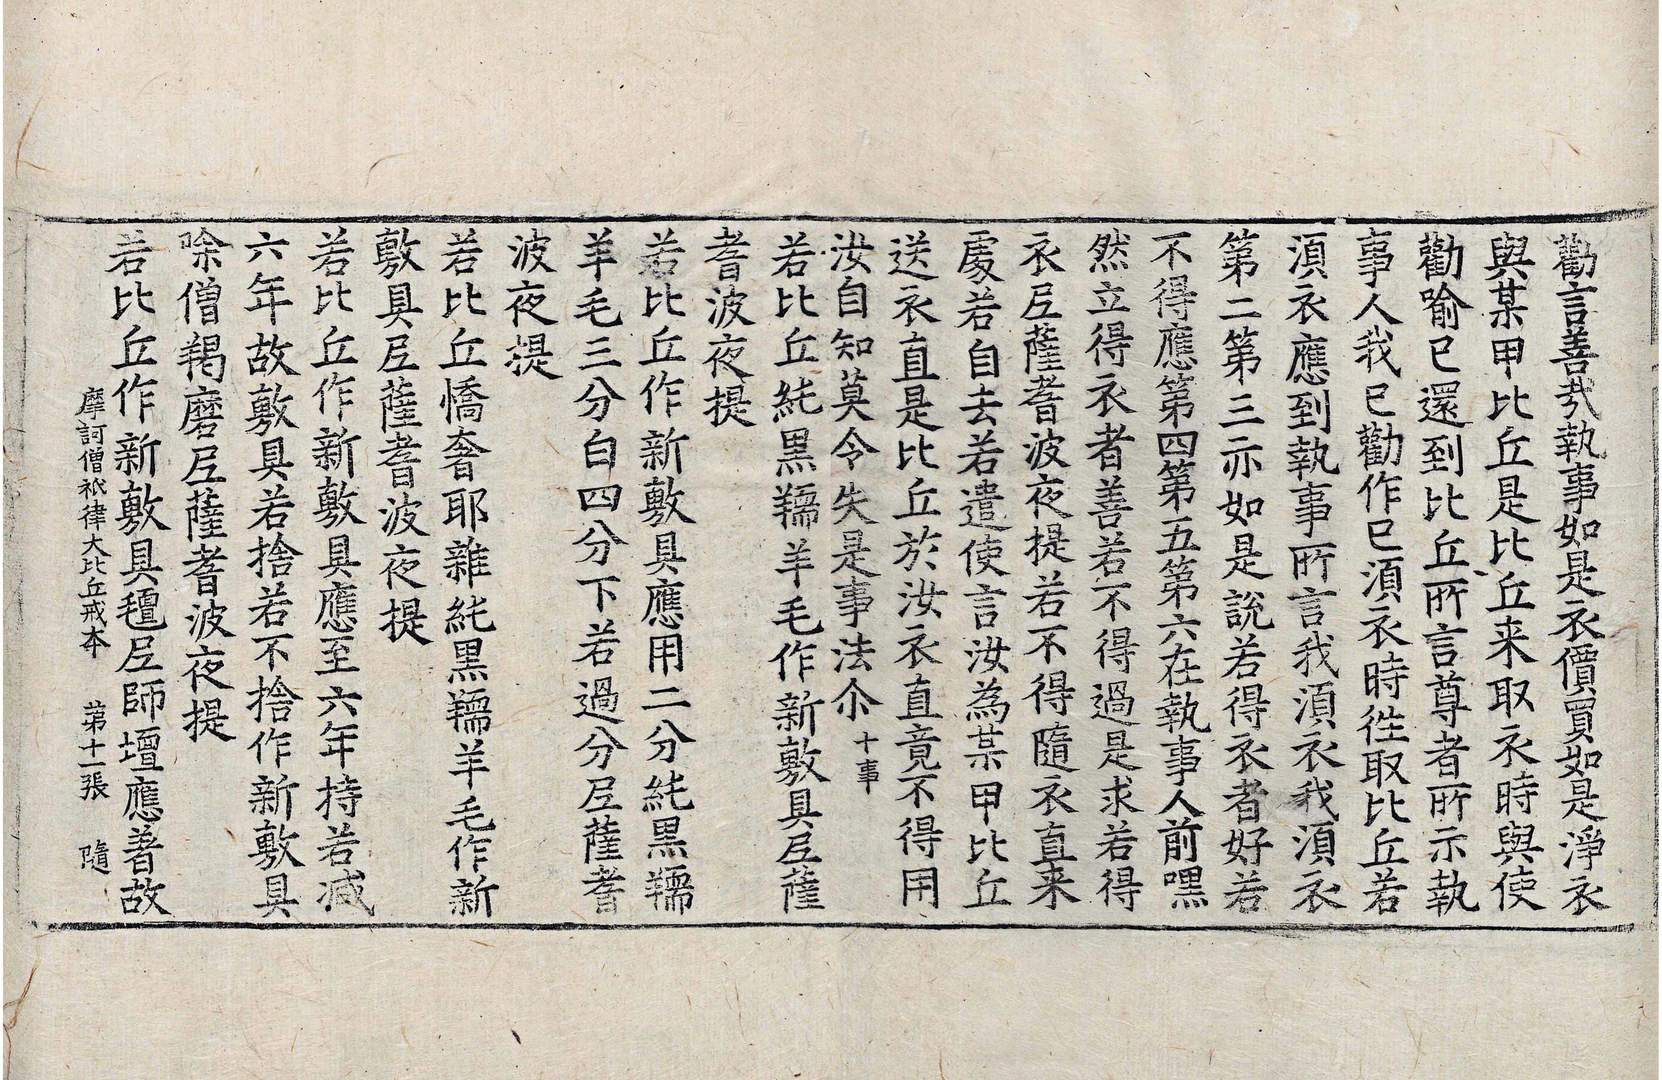 勸言善哉執事如是衣價買如是淨衣
與某甲比丘是比丘来取衣時與使
勸喻已還到比丘所言尊者所示執
事人我已勸作已湏衣時徃取比丘若
湏衣應到執事所言我湏衣我湏衣
第二第三亦如是說若得衣者好若
不得應第四第五第六在執事人前嘿
然立得衣者善若不得過是求若得
衣尼薩耆波夜提若不得隨衣直来
處若自去若遣使言汝為某甲比丘
送衣直是比丘於汝衣直竟不得用
汝自知莫令失是事法尒 十事
若比丘純黑羺羊毛作新敷具尼薩
耆波夜提
若比丘作新敷具應用二分純黑羺
羊毛三分白四分下若過分尼薩耆
波夜提
若比丘憍奢耶雜純黑羺羊毛作新
敷具尼薩耆波夜提
若比丘作新敷具應至六年持若減
六年故敷具若捨若不捨作新敷具
除僧羯磨尼薩耆波夜提
若比丘作新敷具氊尼師壇應著故
摩訶僧祇律大比丘戒夲 苐十一張 隨